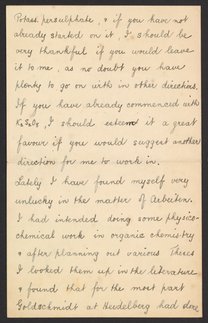 Potass. persulphate, & if you have not
already started on it, I should be
very thankful if you would leave
it to me, as no doubt you have
plenty to go on with in other directions.
If you have already commenced with
K₂S₂O₈, I should esteem it a great
favour if you would suggest another
direction for me to work in.
Lately I have found myself very
unlucky in the matter of Arbeiten.
I had intended doing some physico-
chemical work in organic chemistry
& after planning out various
I looked them up in the literature
& found that for the most part
Goldschmidt at Heidelberg had done